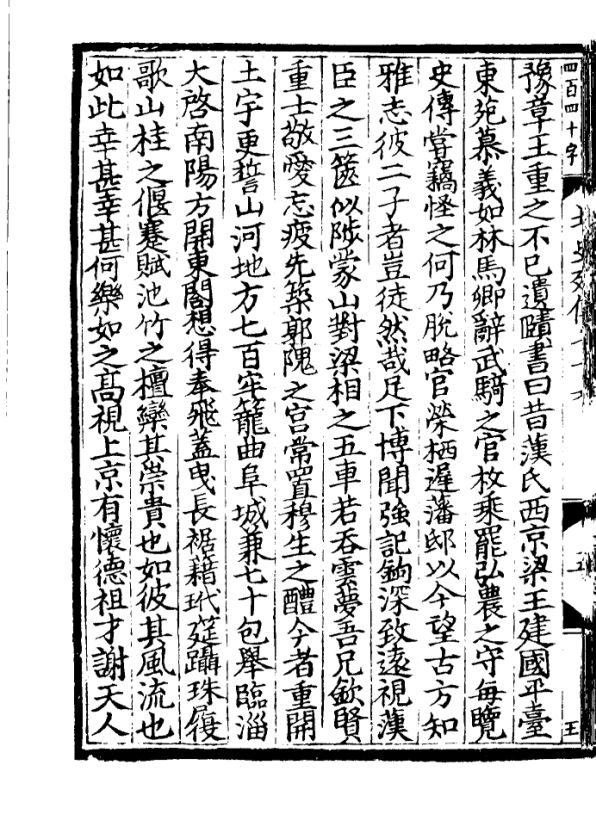 四百四十字
豫章王重之不已遺賾書曰昔漢氏西京梁王建國平臺
東苑慕義如林馬卿辭武騎之官枚乘罷弘農之守每覽
史傳甞竊怪之何乃脫略官榮栖遲藩邸以今望古方知
雅志彼二子者豈徒然哉足下博聞強記鉤深致遠視漢
臣之三篋似陟蒙山對梁相之五車若吞雲夢吾兄欽賢
重士敬愛忘疲先築郭隗之宮常置穆生之醴今者重開
土宇更誓山河地方七百牢籠曲阜城兼七十包舉臨淄
大啓南陽方開東閤想得奉飛蓋曳長裾藉玳筵躡珠履
歌山桂之偃蹇賦池竹之檀欒其崇貴也如彼其風流也
如此幸甚幸甚何樂如之高視上京有懷德祖才謝天人